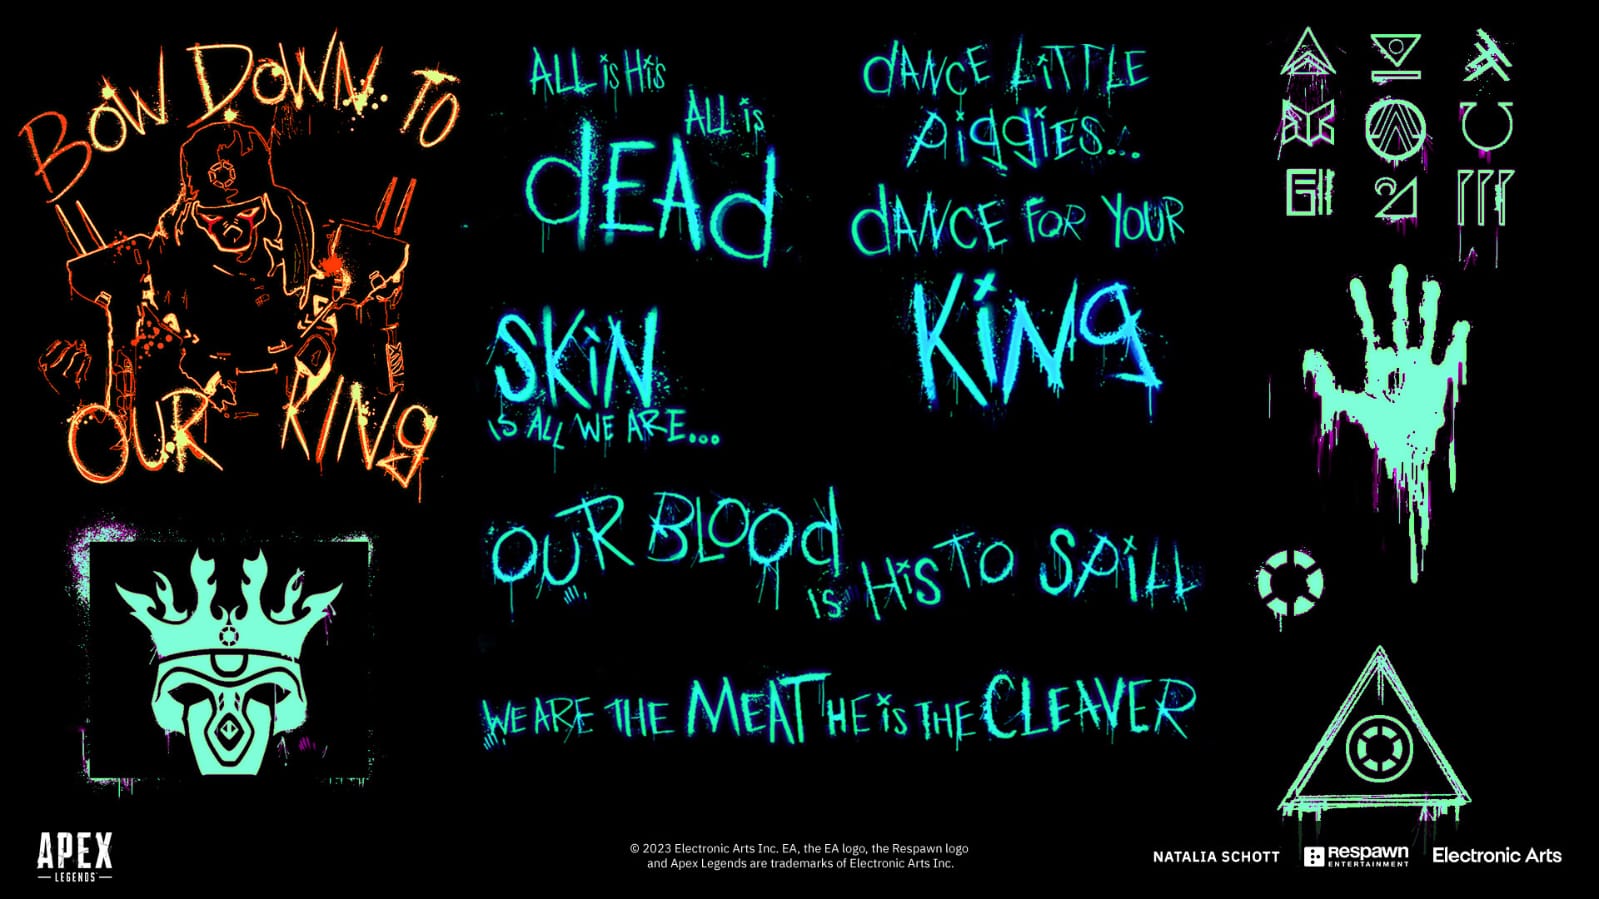 BOW DOWN TO
OUR KING
ALL is His
ALL is
dEAd
SKiN
iS ALL WE ARE...
dANCE LiTTLE
piggiES...
dANCE FOR YOUR
KiNg
OUR BLOOd
is HiS TO SPiLL
WE ARE THE MEAT HE iS THE CLEAVER
APEX
LEGENDS
© 2023 Electronic Arts Inc. EA, the EA logo, the Respawn logo
and Apex Legends are trademarks of Electronic Arts Inc.
NATALIA SCHOTT
RESPAWN
ENTERTAINMENT
Electronic Arts